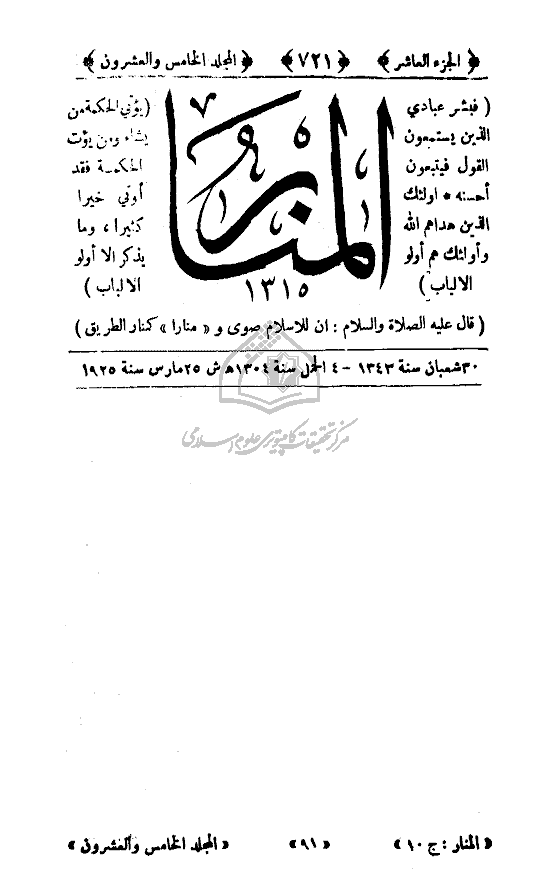 ﴿ الجزء العاشر ﴾ ﴿ ٧٢١ ﴾ ﴿ المجلد الخامس والعشرون ﴾
( فبشر عبادي
الذين يستمعون
القول فيتبعون
أحسنه * اولئك
الذين هداهم الله
وأوائك هم أولو
الالباب )
المنار
١٣١٥
( يؤتي الحكمة من
يشاء ومن يؤت
الحكمة فقد
أوتي خيرا
كثيرا ، وما
يذكر الا أولو
الالباب )
( قال عليه الصلاة والسلام : ان للاسلام صوى و « منارا » كمنار الطريق )
٣٠ شعبان سنة ١٣٤٣ – ٤ الحمل سنة ١٣٠٤ ه‍ ش ٢٥ مارس سنة ١٩٢٥
مرکز تحقیقات کامپیوتری علوم اسلامی
« المنار : ج ١٠ » « ٩١ » « المجلد الخامس والعشرون »